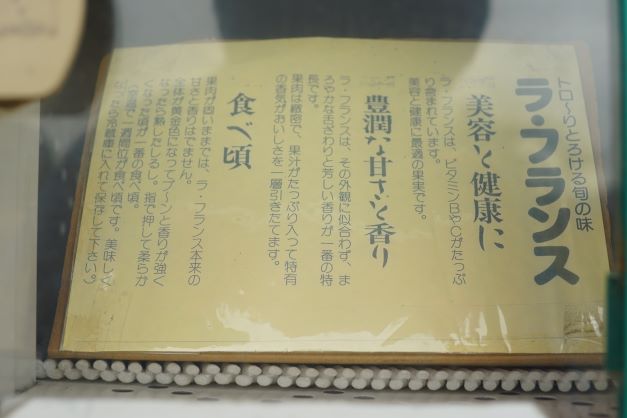 トロ～りとろける旬の味
ラ・フランス
美容と健康に
ラ・フランスは、ビタミンBやCがたっぷ
り含まれています。
美容と健康に最適の果実です。
豊潤な甘さと香り
ラ・フランスは、その外観に似合わず、ま
ろやかな舌ざわりと芳しい香りが一番の特
長です。
果肉は緻密で、果汁がたっぷり入って特有
の香気がおいしさを一層引きたてます。
食べ頃
果肉が固いままでは、ラ・フランス本来の
甘さと香りはでません。
全体が黄金色になってプ～ンと香りが強く
なったら熟したしるし。指で押して柔らか
くなった頃が一番の食べ頃。
（室温で一週間位が食べ頃です。美味しく
なったら冷蔵庫に入れて保存して下さい。）